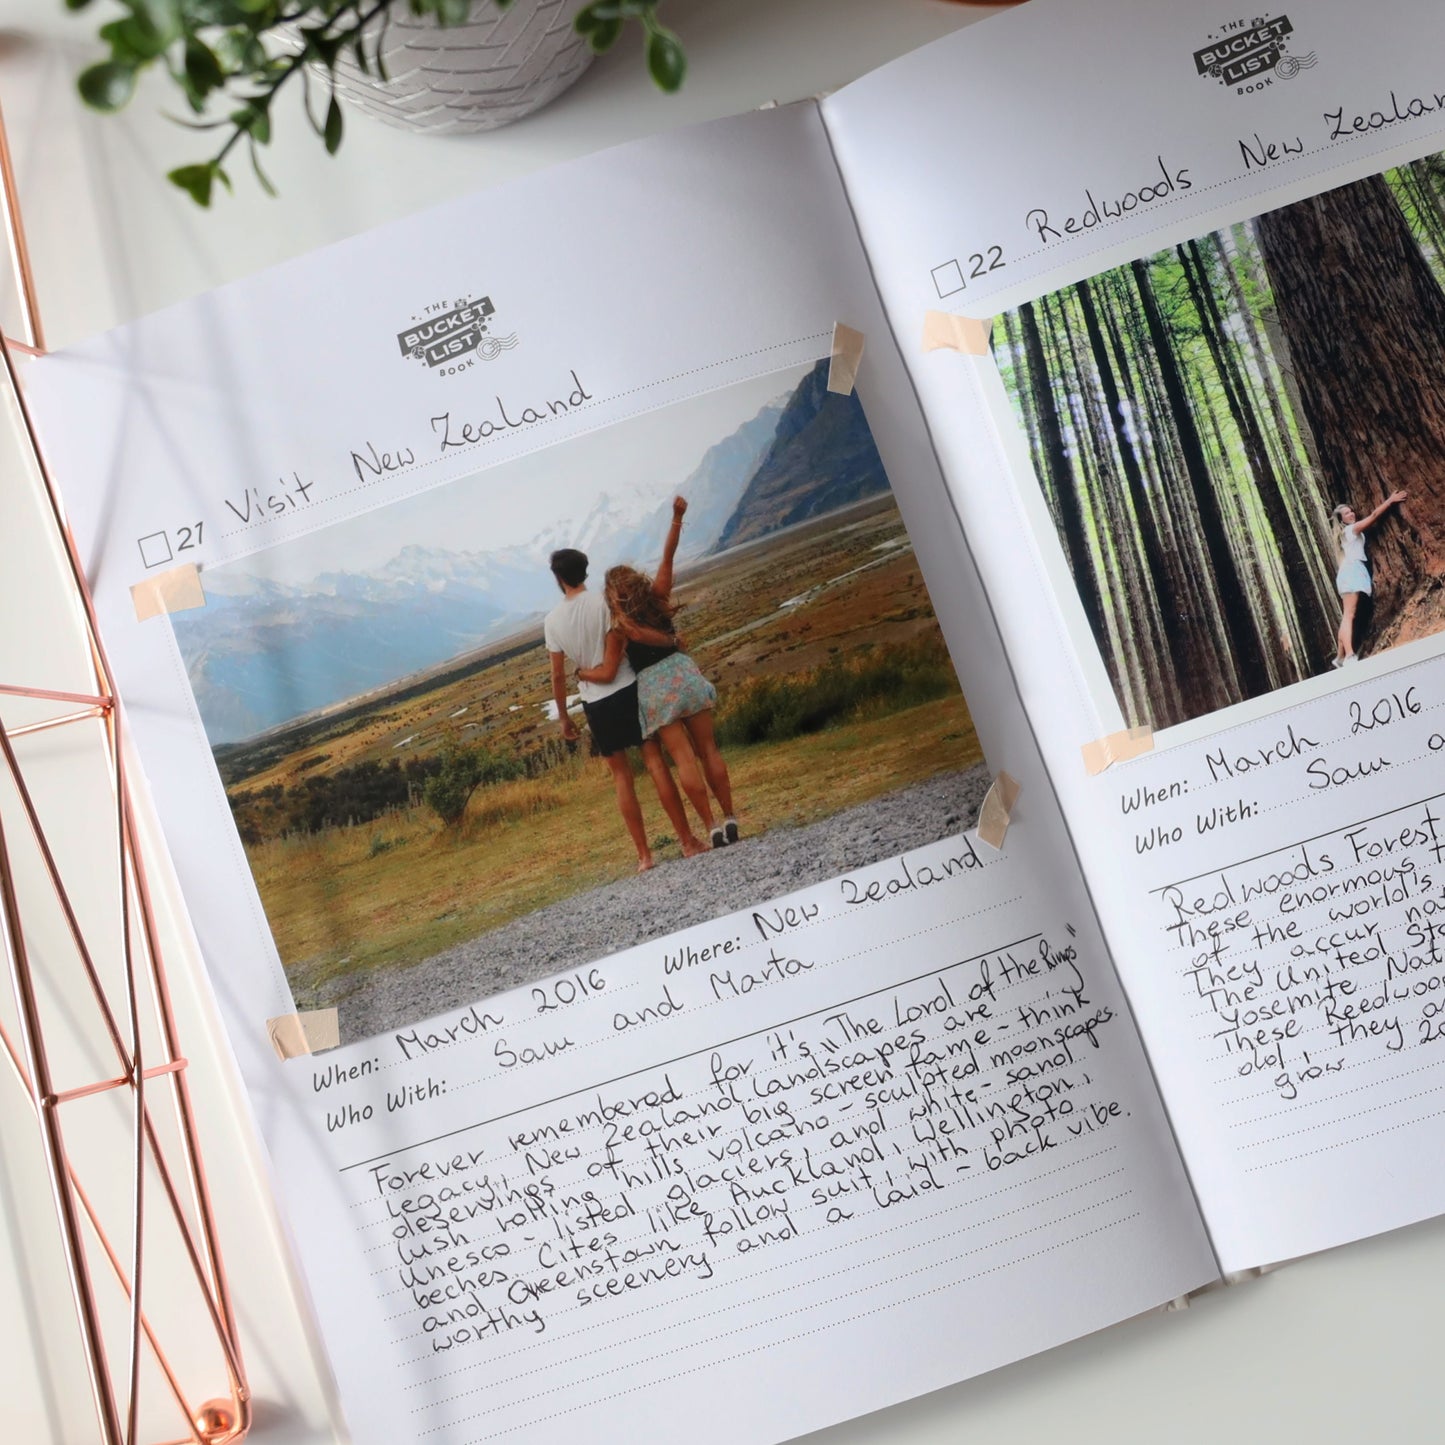 THE
BUCKET
LIST
BOOK
21 Visit New Zealand
When: March 2016 Where: New Zealand
Who With: Sam and Marta
Forever remembered for it's „The Lord of the Rings"
legacy, New Zealand. Landscapes are
deservings of their big screen fame - think
lush rolling hills volcano - sculpted moonscapes.
Unesco - listed glaciers, and white - sand
beches. Cites like Auckland, Wellington,
and Queenstown follow suit, with photo
worthy sceenery and a laid - back vibe.
THE
BUCKET
LIST
BOOK
22 Redwoods New Zealan
When: March 2016
Who With: Sam
Redwoods Forest
These enormous
of the world's
They accur
The United
Yosemite
These
old, they
grow